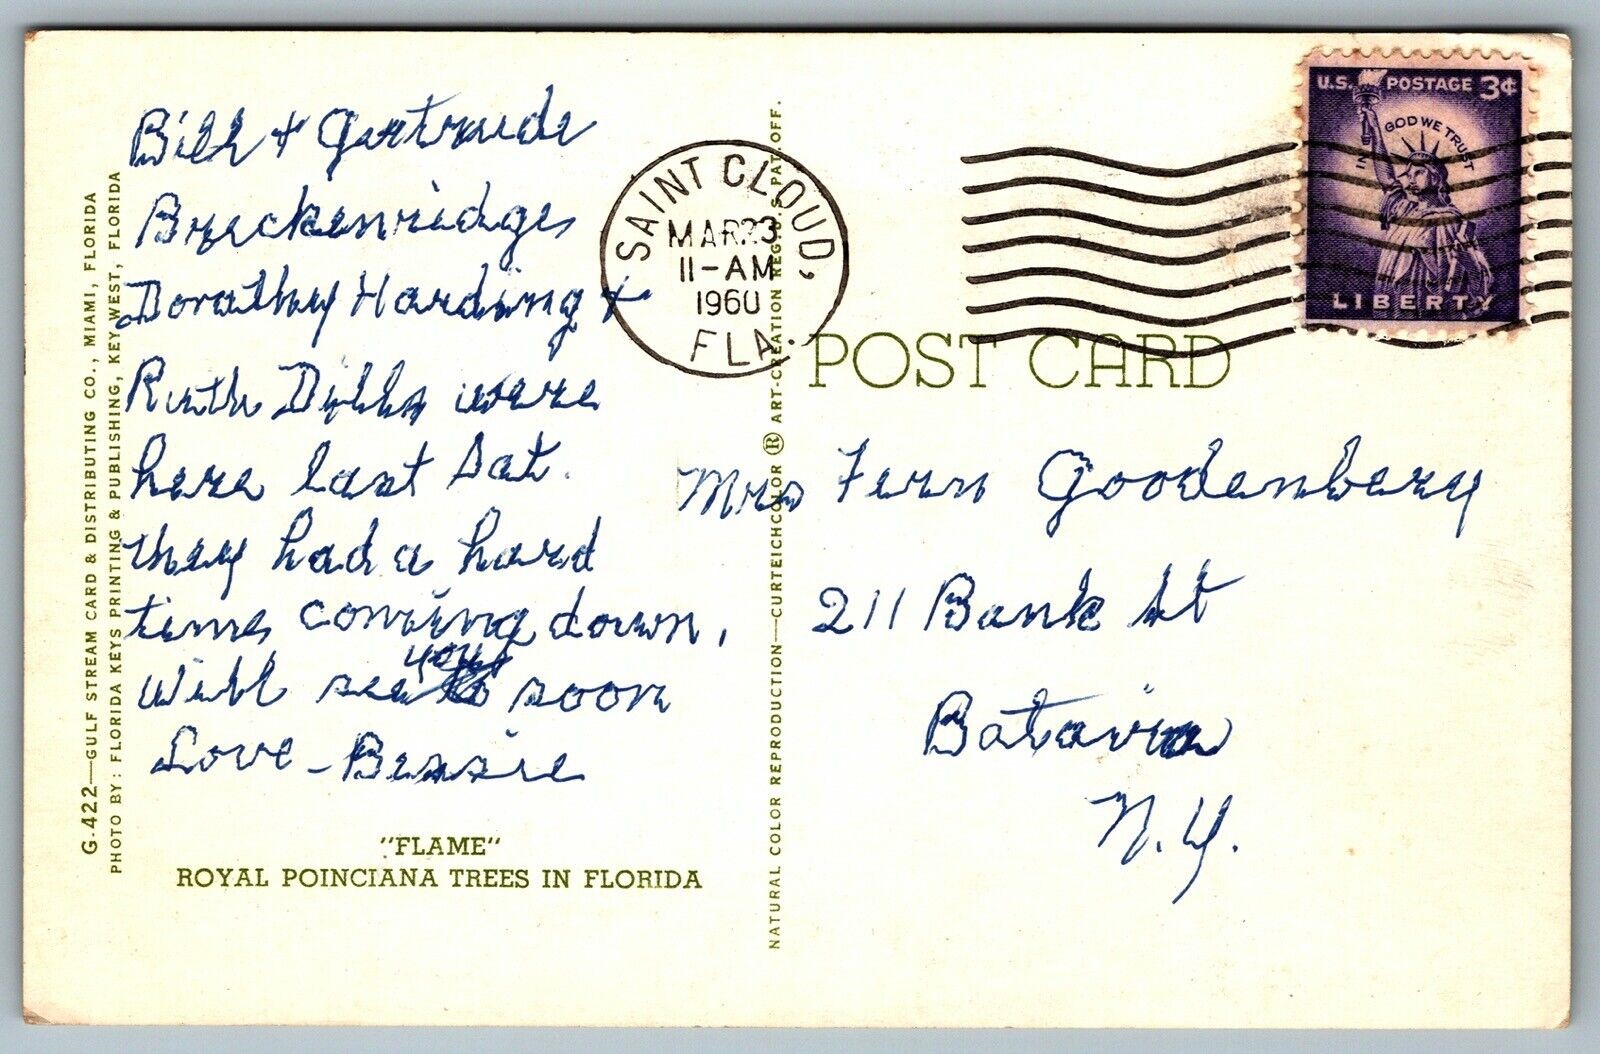 Bill & Gertrude
Breckenridge,
Dorathy Harding &
Ruth Dibbs were
here last Sat.
they had a hard
time coming down,
will see you soon
Love - Bessie
"FLAME"
ROYAL POINCIANA TREES IN FLORIDA
G-422—GULF STREAM CARD & DISTRIBUTING CO., MIAMI, FLORIDA
PHOTO BY: FLORIDA KEYS PRINTING & PUBLISHING, KEY WEST, FLORIDA
NATURAL COLOR REPRODUCTION—CURTEICHCOLOR ® ART-CREATION REG. U.S. PAT. OFF.
SAINT CLOUD,
MAR 23
11-AM
1960
FLA.
U.S. POSTAGE 3¢
IN GOD WE TRUST
LIBERTY
POST CARD
Mrs Fern Goodenbery
211 Bank St
Batavia
N.Y.